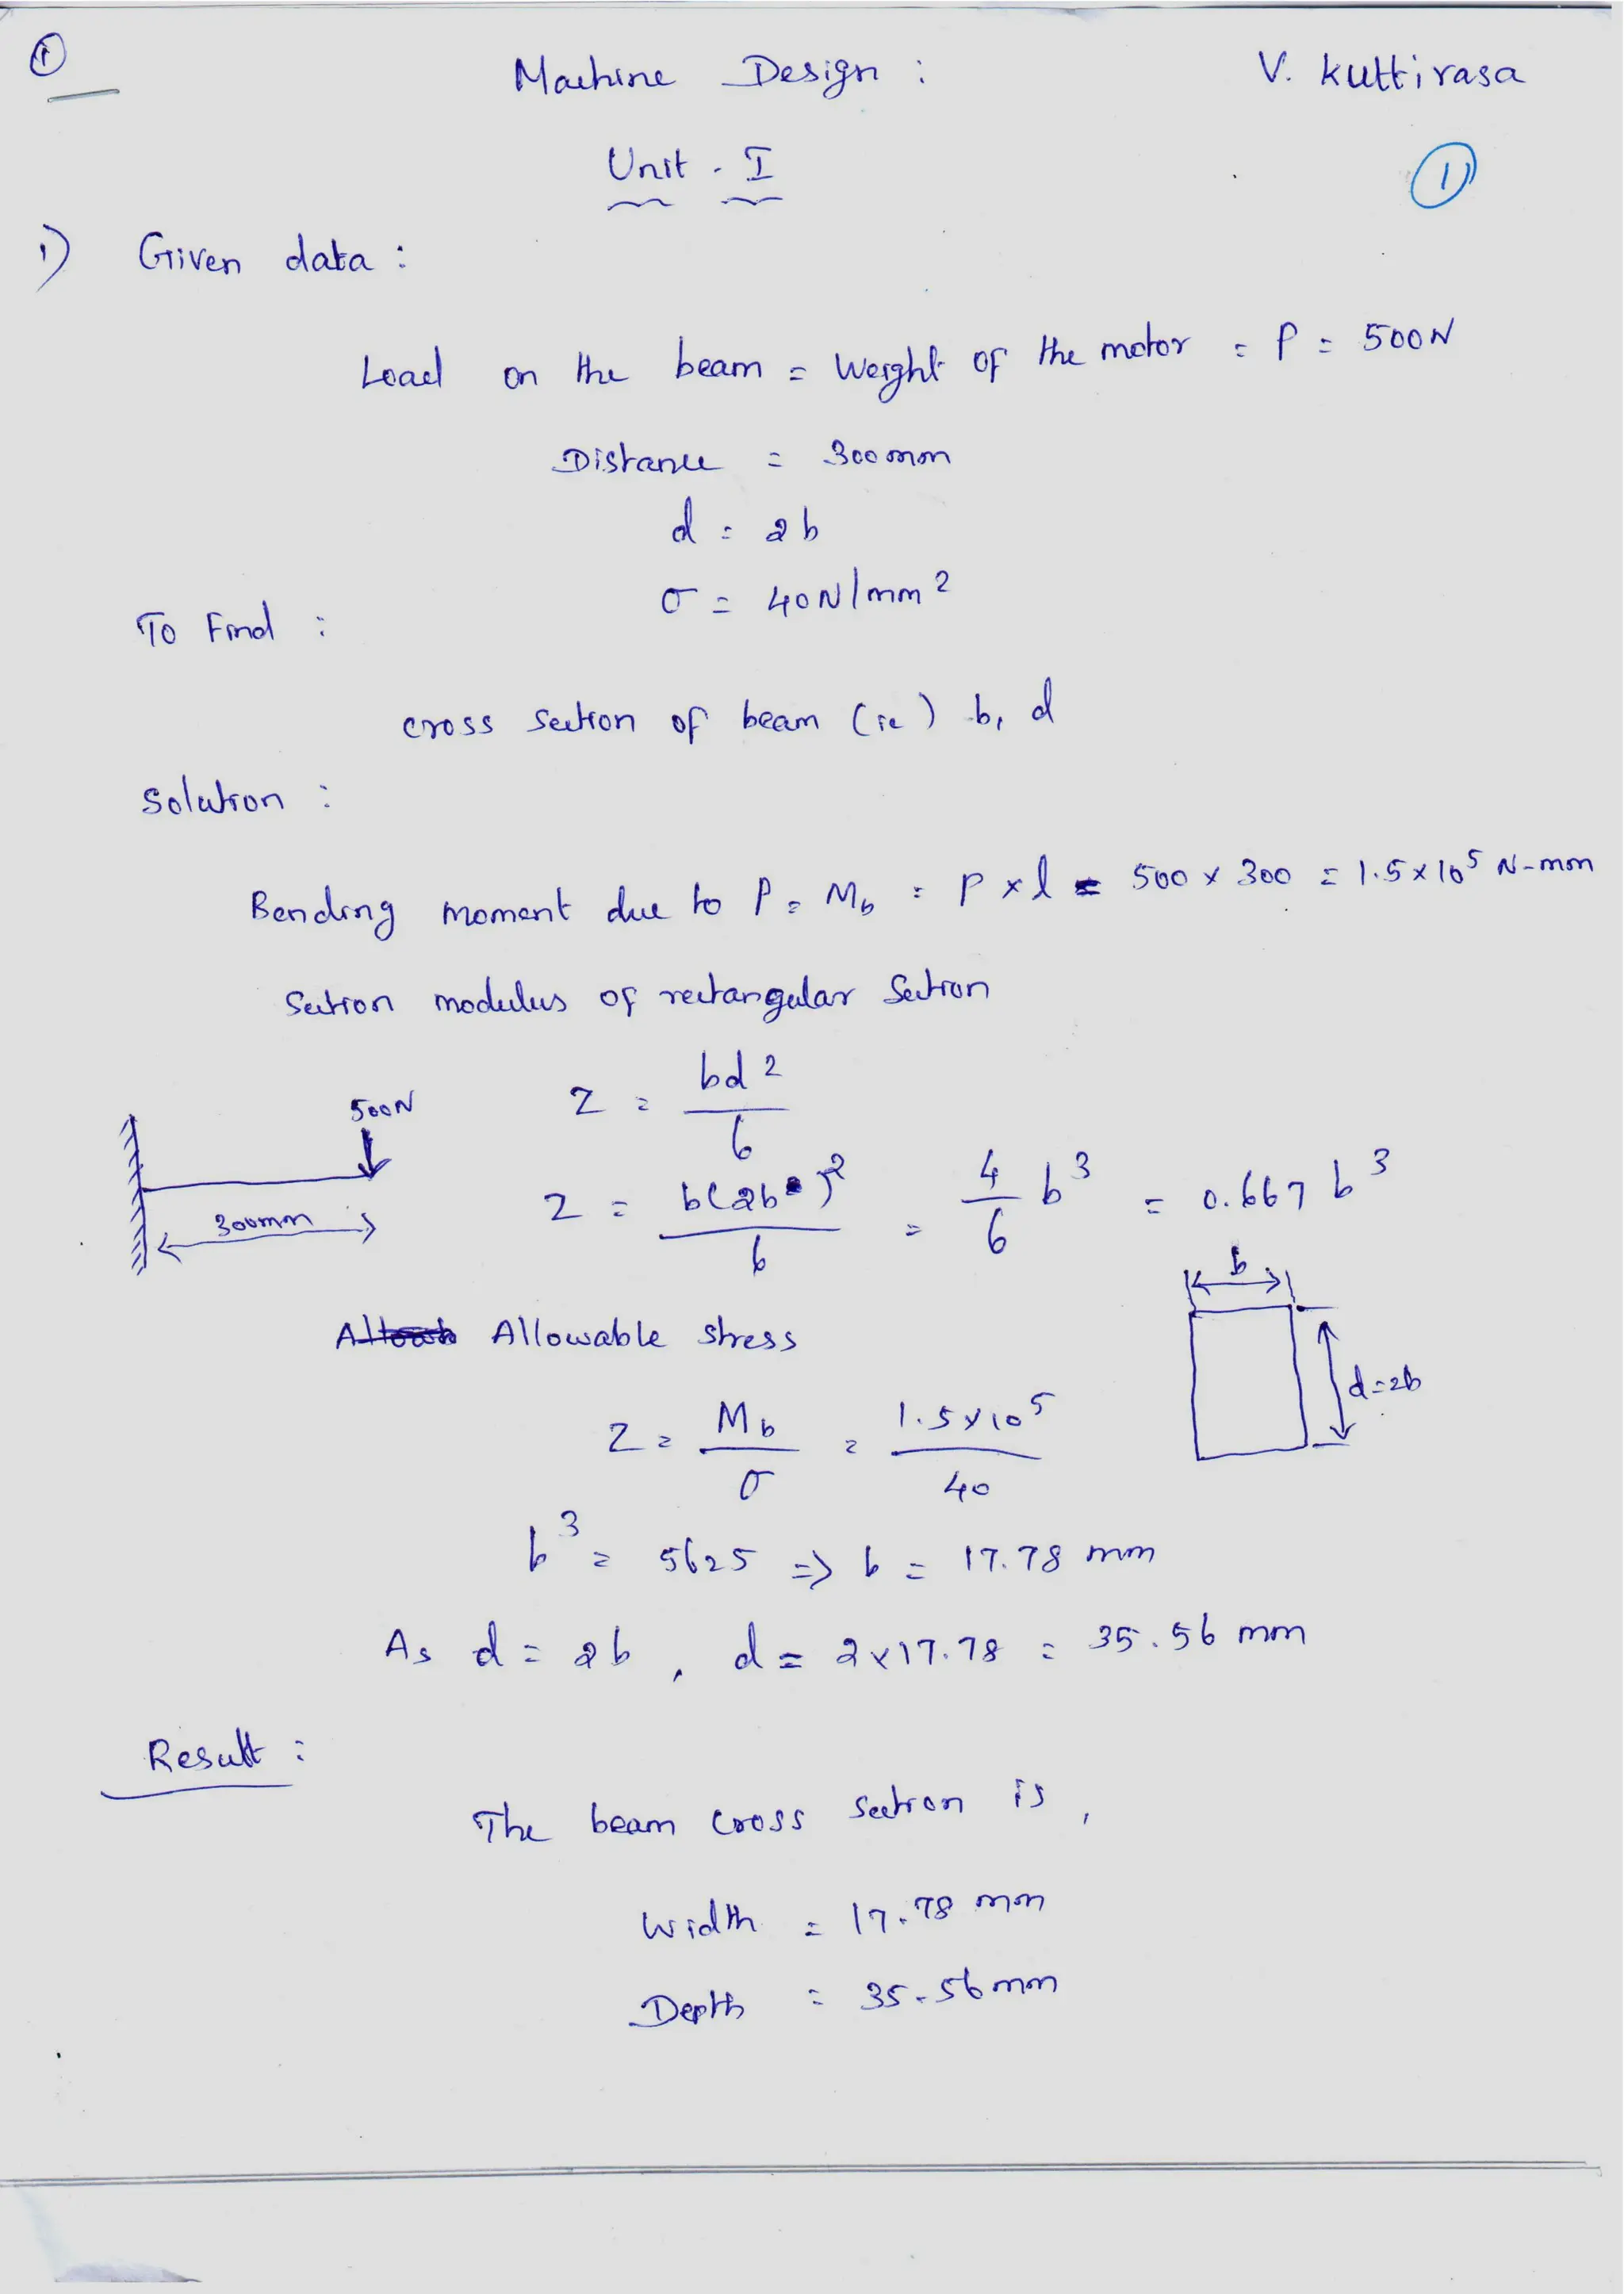 ①
Machine Design :
V. Kuttirasa
Unit - I
①
1) Given data :
Load on the beam = Weight of the motor = P = 500N
Distance = 300mm
d = 2b
σ = 40N/mm²
To Find :
cross section of beam (ie) b, d
Solution :
Bending moment due to P = M_b = P × l = 500 × 300 = 1.5 × 10⁵ N-mm
Section modulus of rectangular Section
Z = bd²/6
500N
300mm
Z = b(2b)²/6 = 4/6 b³ = 0.667 b³
b
d=2b
Allowable stress
Z = M_b/σ = 1.5×10⁵/40
b³ = 5625 => b = 17.78 mm
As d = 2b, d = 2×17.78 = 35.56 mm
Result :
The beam cross section is,
Width = 17.78 mm
Depth = 35.56mm